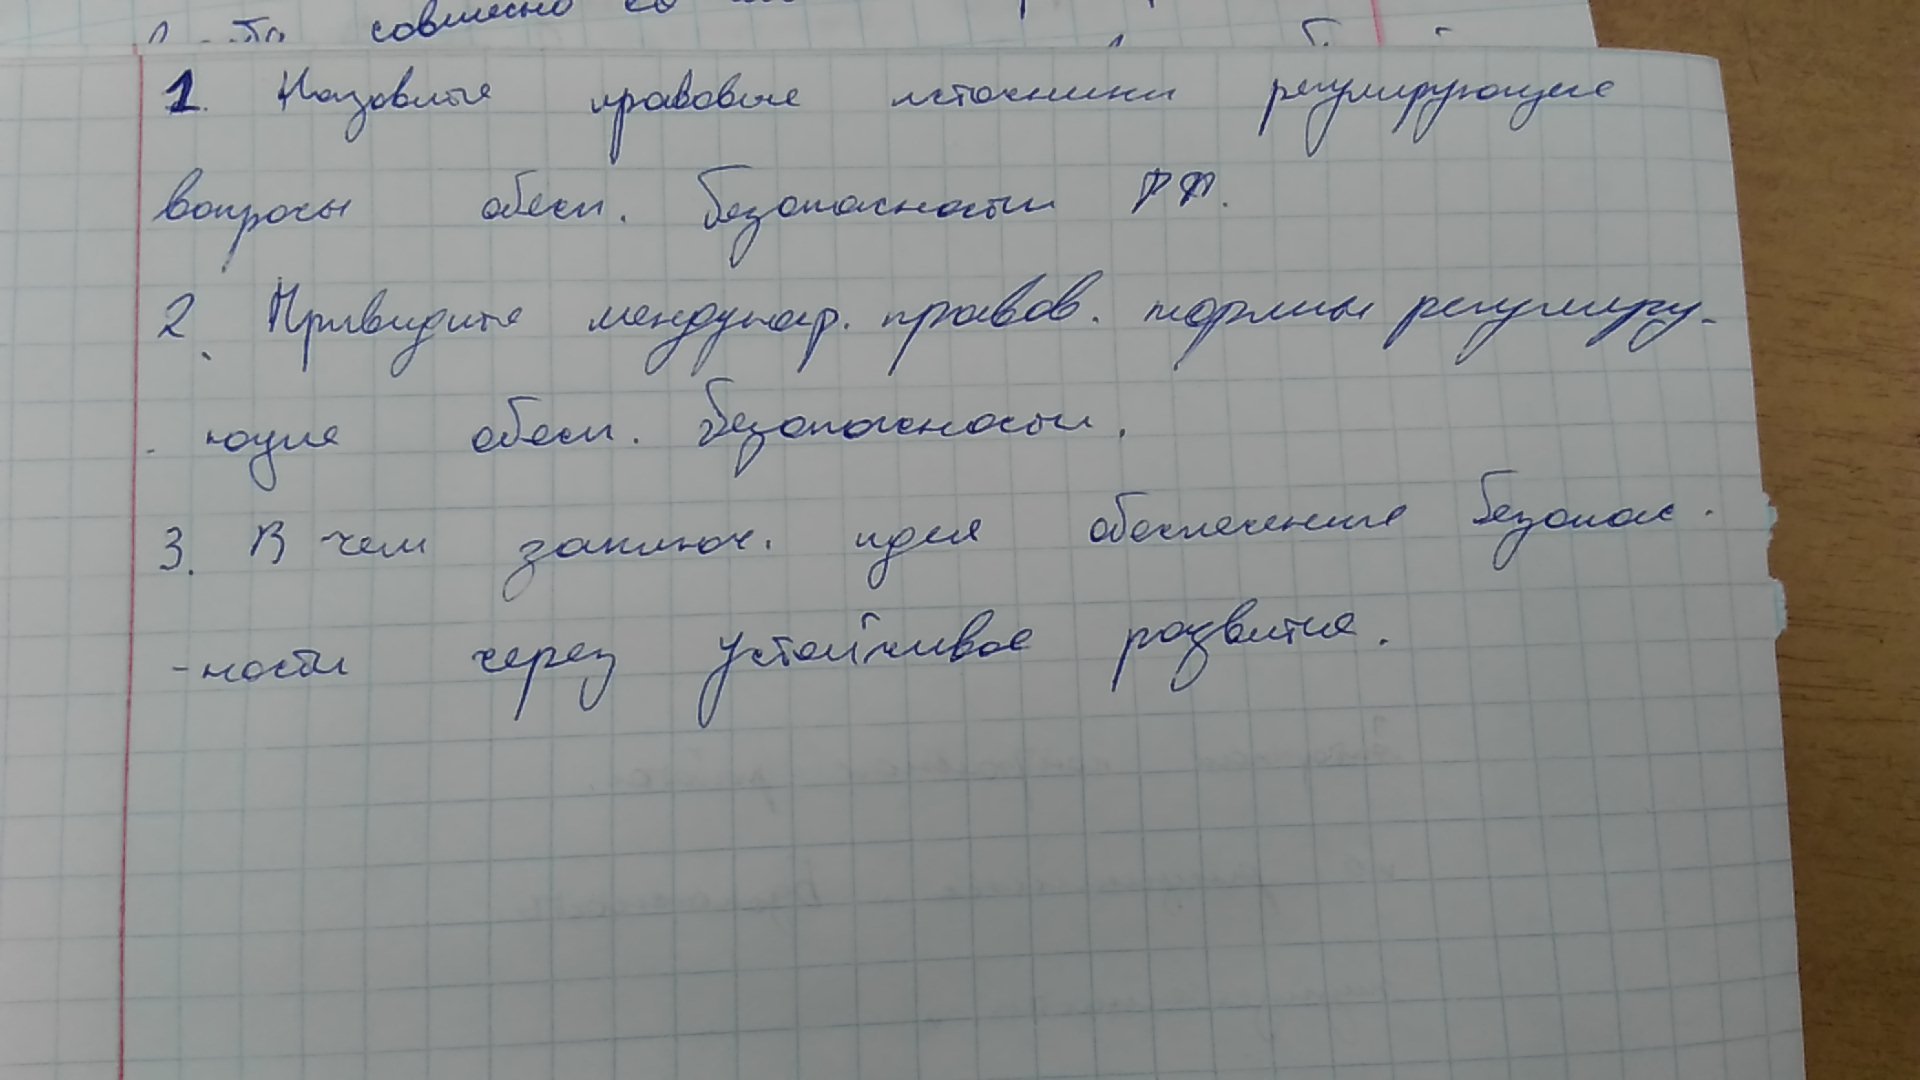 совместно со
1. Назовите правовые источники регулирующие
вопросы обесп. безопасности РФ.
2. Привидите междунар. правов. нормы регулиру-
ющие обесп. безопасности.
3. В чем заключ. идея обеспечение безопас.
-ности через устойчивое развитие.